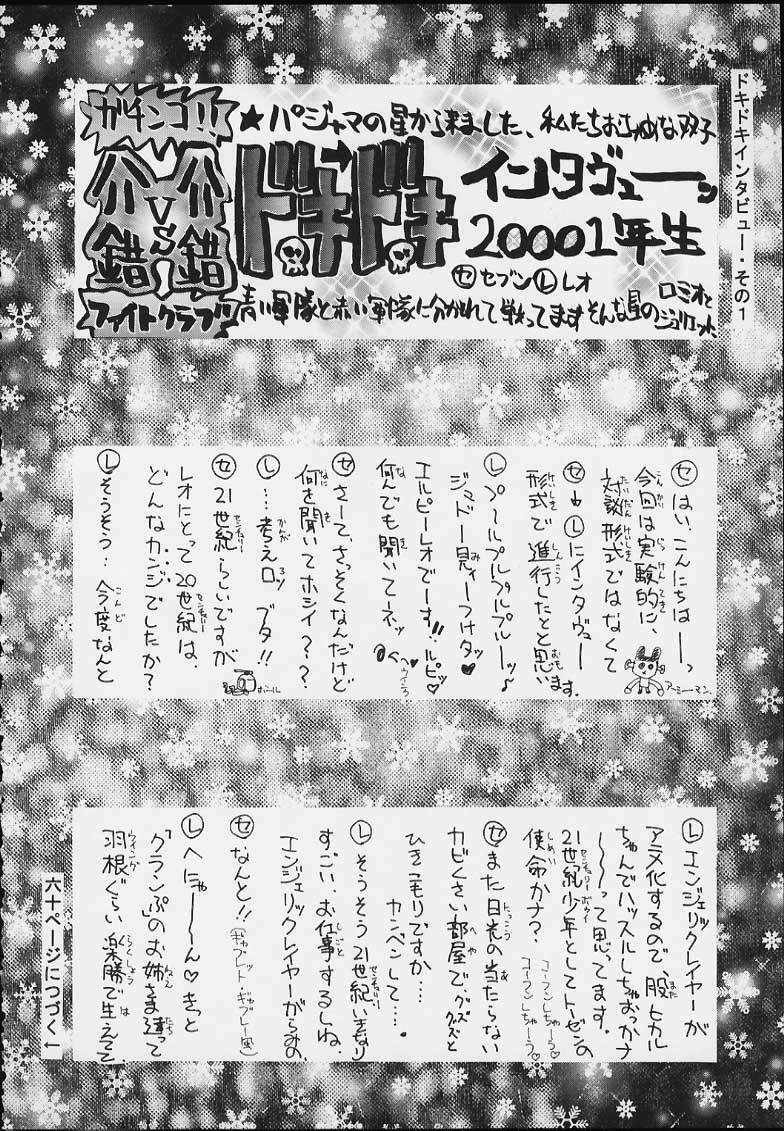 ドキドキインタビュー・その1
ガチンコ!!
介錯
VS
介錯
ファイトクラブッ
★パジャマの星から来ました、私たちおちゃめな双子
ドキドキ
インタヴューーッ
20001年生
セ セブン レ レオ
青い軍隊と赤い軍隊に分かれて戦ってます そんな星の
ロミオと
ジュリエット
セ はい、こんにちはーっ
今回は実験的に、
対談形式ではなくて
セ→レにインタヴュー
形式で進行したいと思います。
アーミーマン。
レ プールプルプルプルーッ♪
ジュドー見ィーつけタッ♥
エルピーレオでーす!!ルピッ♥
何んでも聞いてーネッ
セ さーて、さっそくなんだけど
何を聞いてホシイ??
レ …考えロッ ブタ!!
セ 21世紀らしいですが
レオにとって20世紀は、
どんなカンジでしたか?
レ そうそう…今度なんと
レ エンジェリックレイヤーが
アニメ化するので、股ヒカル
ちゃんでハッスルしちゃおっかナ
〜〜って思ってます。
21世紀少年としてトーゼンの
使命かナ?
コーフンしちゃーう
コーフンしちゃーう♡
セ また日光の当たらない
カビくさい部屋で、グズグズと
ひきこもりですか…
カンベンして…。
レ そうそう21世紀いきなり
すごい、お仕事するしね、
エンジェリックレイヤーがらみの
セ なんと!!(ギャブレット・ギャブレー風)
レ へにゃ〜〜ん♡きっと
「クランぷ」のお姉さま達って
羽根ぐらい楽勝で生えてて
六十ページにつづく←